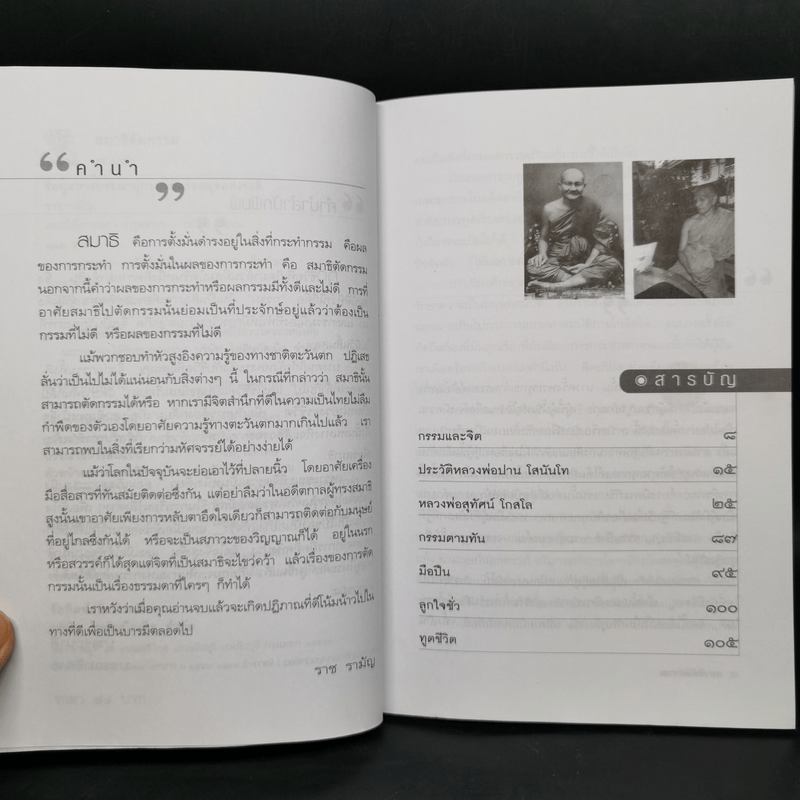 คำนำ
สมาธิ คือการตั้งมั่นดำรงอยู่ในสิ่งที่กระทำกรรม คือผล
ของการกระทำ การตั้งมั่นในผลของการกระทำ คือ สมาธิตัดกรรม
นอกจากนี้คำว่าผลของการกระทำหรือผลกรรมมีทั้งดีและไม่ดี การที่
อาศัยสมาธิไปตัดกรรมนั้นย่อมเป็นที่ประจักษ์อยู่แล้วว่าต้องเป็น
กรรมที่ไม่ดี หรือผลของกรรมที่ไม่ดี
แม้พวกชอบทำหัวสูงอิงความรู้ของทางชาติตะวันตก ปฏิเสธ
ลั่นว่าเป็นไปไม่ได้แน่นอนกับสิ่งต่างๆ นี้ ในกรณีที่กล่าวว่า สมาธินั้น
สามารถตัดกรรมได้หรือ หากเรามีจิตสำนึกที่ดีในความเป็นไทยไม่ลืม
กำพืดของตัวเองโดยอาศัยความรู้ทางตะวันตกมากเกินไปแล้ว เรา
สามารถพบในสิ่งที่เรียกว่ามหัศจรรย์ได้อย่างง่ายได้
แม้ว่าโลกในปัจจุบันจะย่อเอาไว้ที่ปลายนิ้ว โดยอาศัยเครื่อง
มือสื่อสารที่ทันสมัยติดต่อซึ่งกัน แต่อย่าลืมว่าในอดีตกาลผู้ทรงสมาธิ
สูงนั้นเขาอาศัยเพียงการหลับตาอึดใจเดียวก็สามารถติดต่อกับมนุษย์
ที่อยู่ไกลซึ่งกันได้ หรือจะเป็นสภาวะของวิญญาณก็ได้ อยู่ในนรก
หรือสวรรค์ก็ได้สุดแต่จิตที่เป็นสมาธิจะไขว่คว้า แล้วเรื่องของการตัด
กรรมนั้นเป็นเรื่องธรรมดาที่ใครๆ ก็ทำได้
เราหวังว่าเมื่อคุณอ่านจบแล้วจะเกิดปฏิภาณที่ดีโน้มน้าวไปใน
ทางที่ดีเพื่อเป็นบารมีตลอดไป
ราช รามัญ
สารบัญ
กรรมและจิต ๘
ประวัติหลวงพ่อปาน โสนันโท ๑๕
หลวงพ่อสุทัศน์ โกสโล ๒๕
กรรมตามทัน ๘๗
มือปืน ๙๕
ลูกใจชั่ว ๑๐๐
ทูตชีวิต ๑๐๕